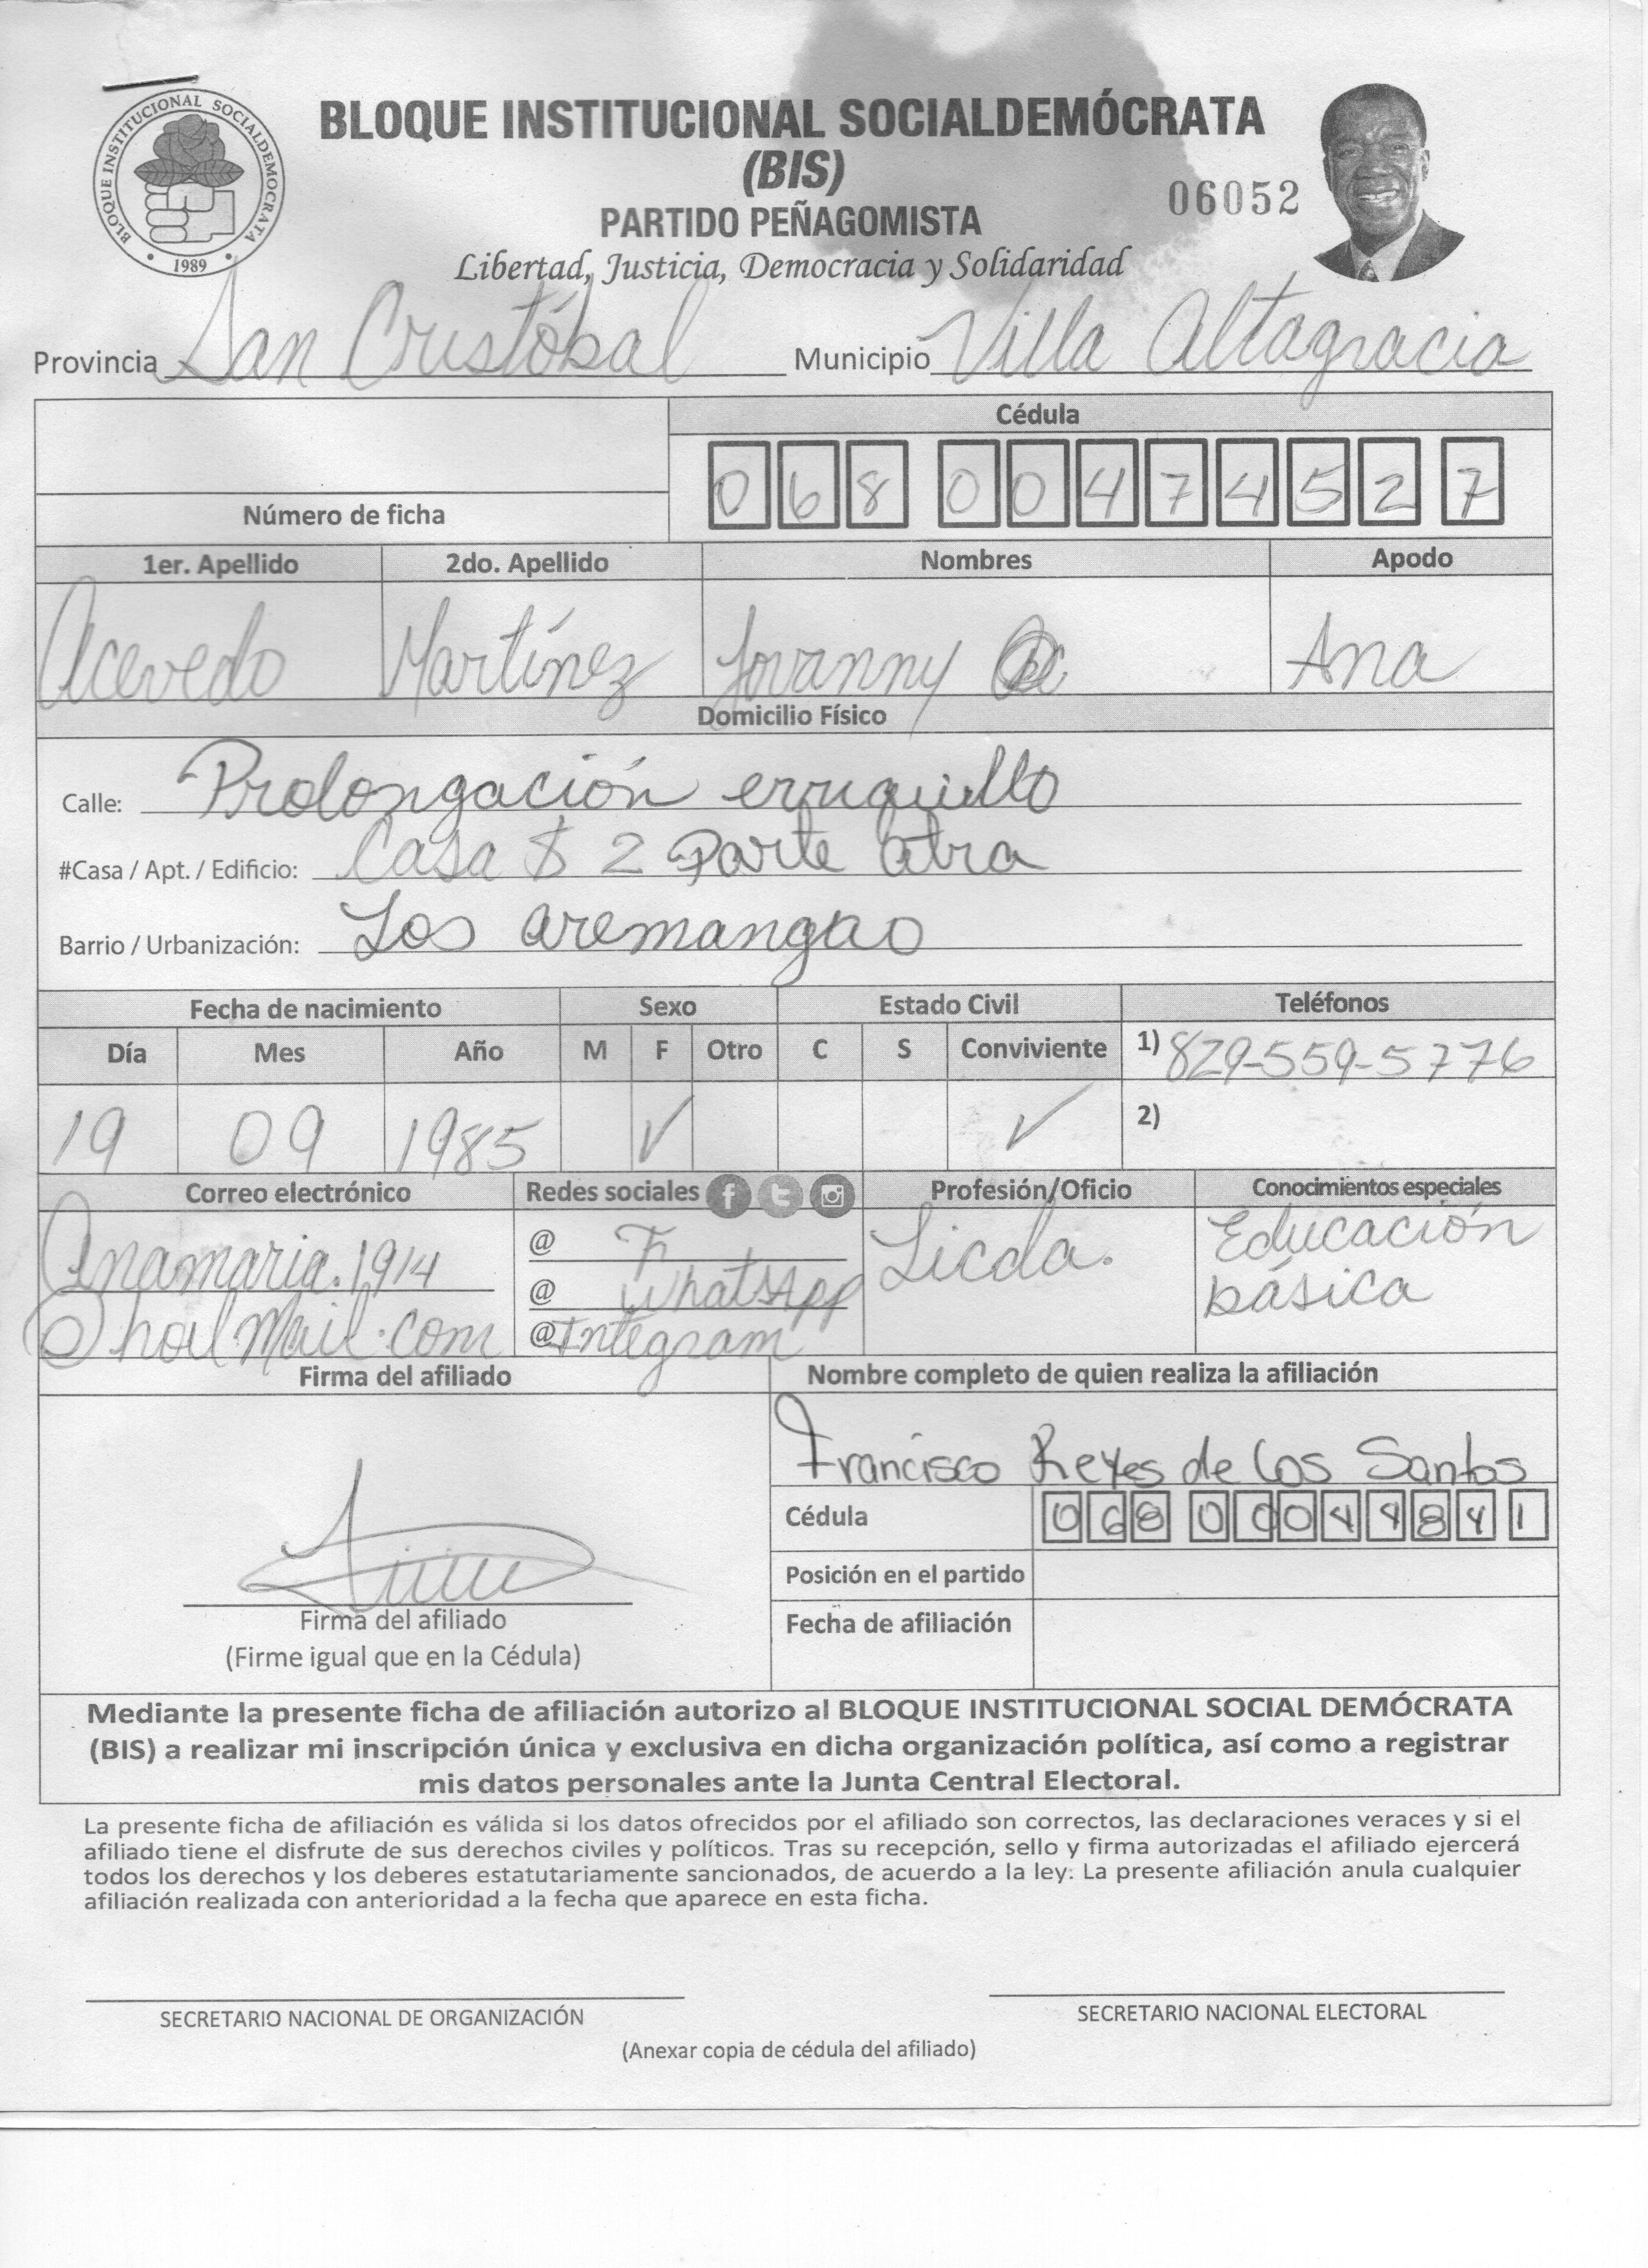 BLOQUE INSTITUCIONAL SOCIALDEMOCRATA
1989
BLOQUE INSTITUCIONAL SOCIALDEMÓCRATA
(BIS)
06052
PARTIDO PEÑAGOMISTA
Libertad, Justicia, Democracia y Solidaridad
Provincia San Cristóbal Municipio Villa Altagracia
Cédula
068 0047452 7
Número de ficha
1er. Apellido 2do. Apellido Nombres Apodo
Acevedo Martínez Jovanny Ana
Domicilio Físico
Calle: Prolongación erruquillo
#Casa / Apt. / Edificio: Casa $ 2 Parte atra
Barrio / Urbanización: Los aremangao
Fecha de nacimiento Sexo Estado Civil Teléfonos
Día Mes Año M F Otro C S Conviviente 1) 829-559-5776
19 09 1985 ✓ ✓ 2)
Correo electrónico Redes sociales Profesión/Oficio Conocimientos especiales
Anamaria.1914 @ Licda. Educación
@hotMail.com @ WhatsApp básica
@Integram
Firma del afiliado Nombre completo de quien realiza la afiliación
Francisco Reyes de Los Santos
Cédula 068 0004484 1
Posición en el partido
Firma del afiliado Fecha de afiliación
(Firme igual que en la Cédula)
Mediante la presente ficha de afiliación autorizo al BLOQUE INSTITUCIONAL SOCIAL DEMÓCRATA
(BIS) a realizar mi inscripción única y exclusiva en dicha organización política, así como a registrar
mis datos personales ante la Junta Central Electoral.
La presente ficha de afiliación es válida si los datos ofrecidos por el afiliado son correctos, las declaraciones veraces y si el
afiliado tiene el disfrute de sus derechos civiles y políticos. Tras su recepción, sello y firma autorizadas el afiliado ejercerá
todos los derechos y los deberes estatutariamente sancionados, de acuerdo a la ley. La presente afiliación anula cualquier
afiliación realizada con anterioridad a la fecha que aparece en esta ficha.
SECRETARIO NACIONAL DE ORGANIZACIÓN SECRETARIO NACIONAL ELECTORAL
(Anexar copia de cédula del afiliado)